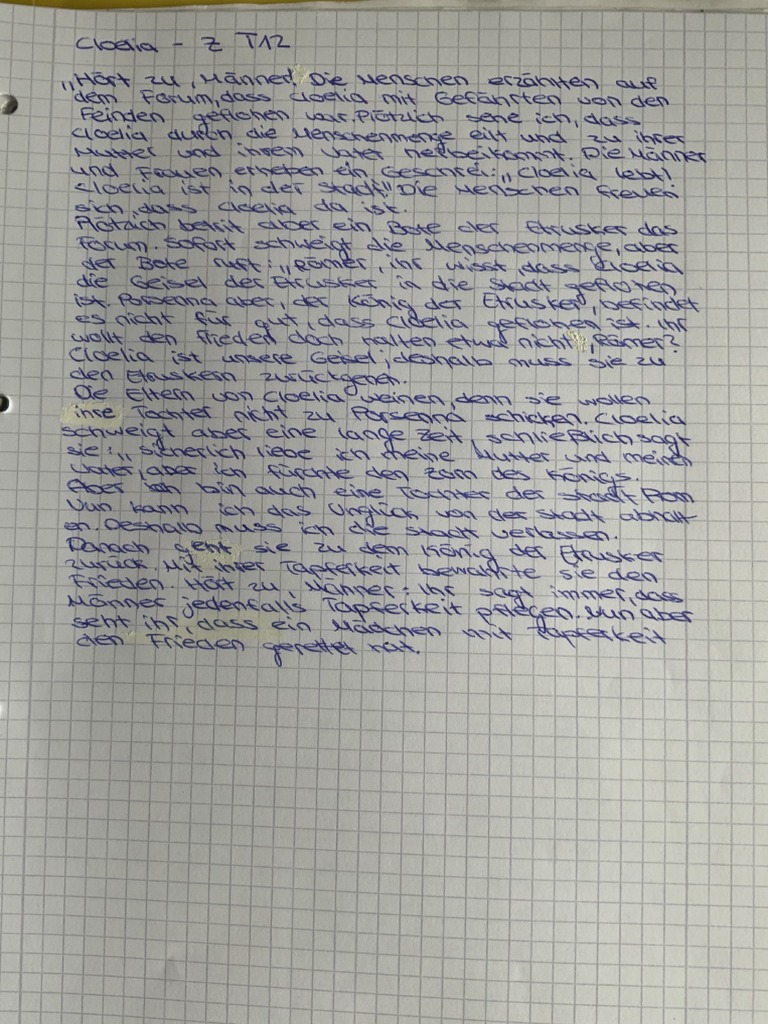 Cloelia - Z T12
„Hört zu, Männer! Die Menschen erzählten auf
dem Forum, dass Cloelia mit Gefährten von den
Feinden geflohen war. Plötzlich sehe ich, dass
Cloelia durch die Menschenmenge eilt und zu ihrer
Mutter und ihrem Vater herbeikommt. Die Männer
und Frauen erheben ein Geschrei: „Cloelia lebt!
Cloelia ist in der Stadt!" Die Menschen freuen
sich, dass Cloelia da ist.
Plötzlich betrit aber ein Bote der Etrusker das
Forum. Sofort schweigt die Menschenmenge, aber
der Bote ruft: „Römer, ihr wisst, dass Cloelia
die Geisel der Etrusker in die Stadt geflohen
ist. Porsenna aber, der König der Etrusker, befindet
es nicht für gut, dass Cloelia geflohen ist. Ihr
wollt den Frieden doch halten etwa nicht, Römer?
Cloelia ist unsere Geisel; deshalb muss sie zu
den Etruskern zurückgehen.
Die Eltern von Cloelia weinen, denn sie wollen
ihre Tochter nicht zu Porsenna schicken. Cloelia
schweigt aber eine lange Zeit, schließlich sagt
sie: „Sicherlich liebe ich meine Mutter und meinen
Vater, aber ich fürchte den Zorn des Königs.
Aber ich bin auch eine Tochter der Stadt Rom
Nun kann ich das Unglück von der Stadt abhalt
en. Deshalb muss ich die Stadt verlassen.
Danach geht sie zu dem König der Etrusker
zurück. Mit ihrer Tapferkeit bewahrte sie den
Frieden. Hört zu, Männer: Ihr sagt immer, dass
Männer jedenfalls Tapferkeit pflegen. Nun aber
seht ihr, dass ein Mädchen mit Tapferkeit
den Frieden gerettet hat.